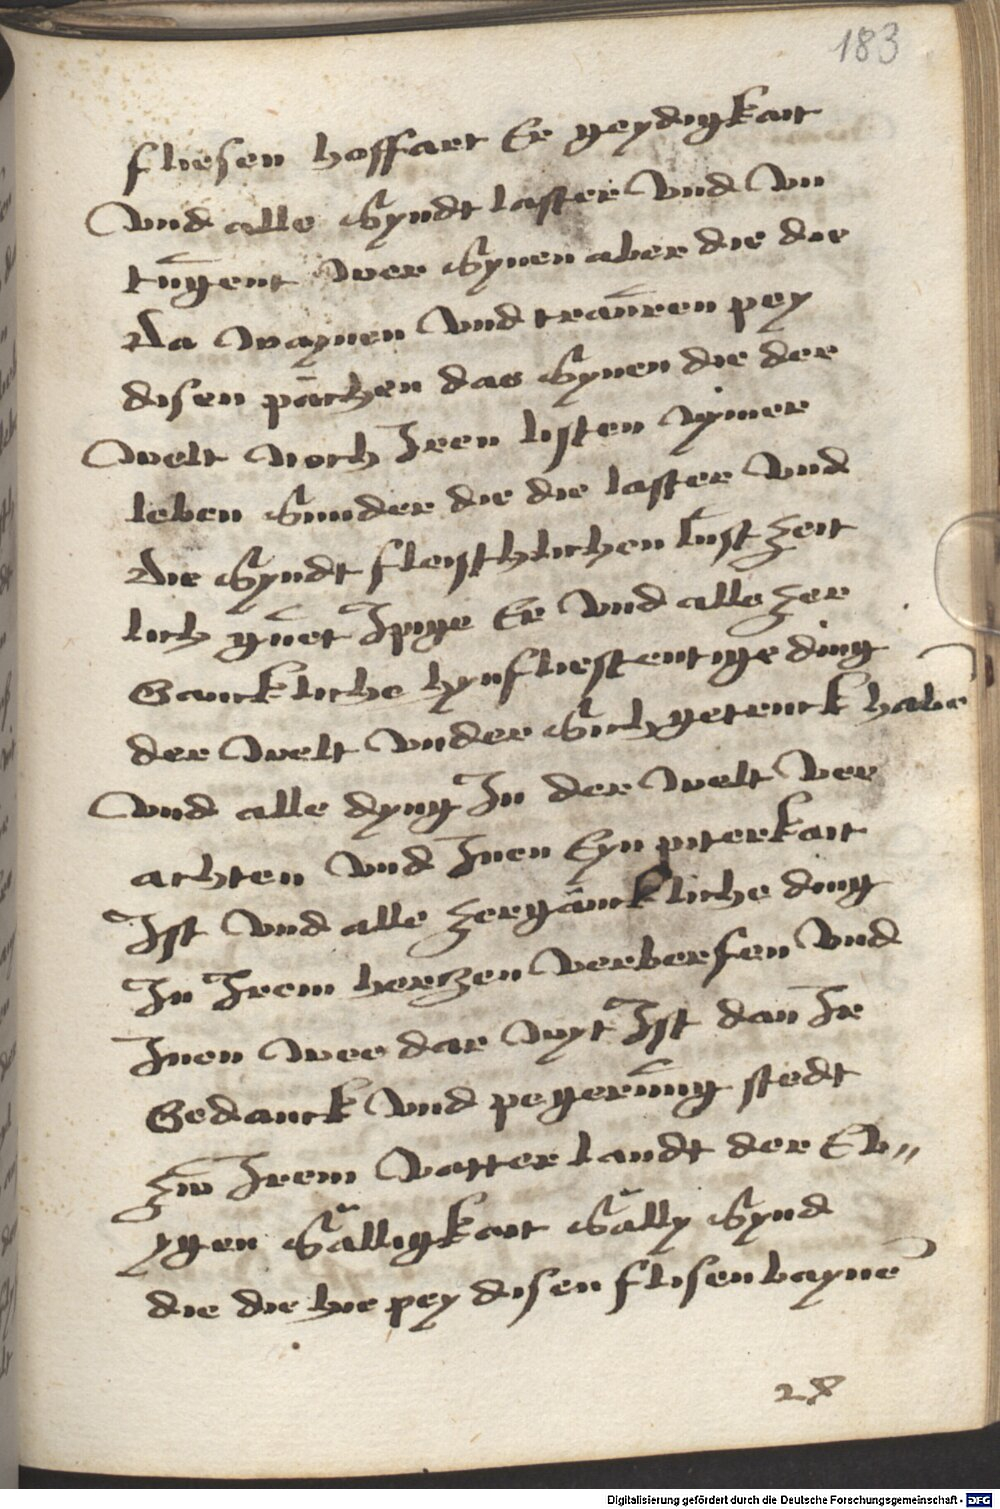 183
fliesen hoffart Er geydigkait
Vnd alle Syndt laster Vnd Vn
tugent wer Synen aber die die
Da waynen Vnd trauren pey
disen pächen das Synen die der
welt noch Iren listen nymer
leben Sunder die die laster Vnd
die Syndt fleisthlichen lust zeit
lich guet Ipige Er Vnd alle zer
Ganckliche hynfliestentige ding
der welt Vnder Sich getruck haben̄
Vnd alle dyng In der welt Ver
achten Vnd Inen Eyn piterkait
Ist Vnd alle zergänckliche ding
In Irem hertzen Verberfen Vnd
Inen wee dar Vyt Ist dan Ir
Gedanck Vnd pegerung stedt
zw Irem Vatterlandt der Ew„
ygen Sälligkait Sälly Synd
die die hie pey disen flisen waynē
28
Digitalisierung gefördert durch die Deutsche Forschungsgemeinschaft - DFG